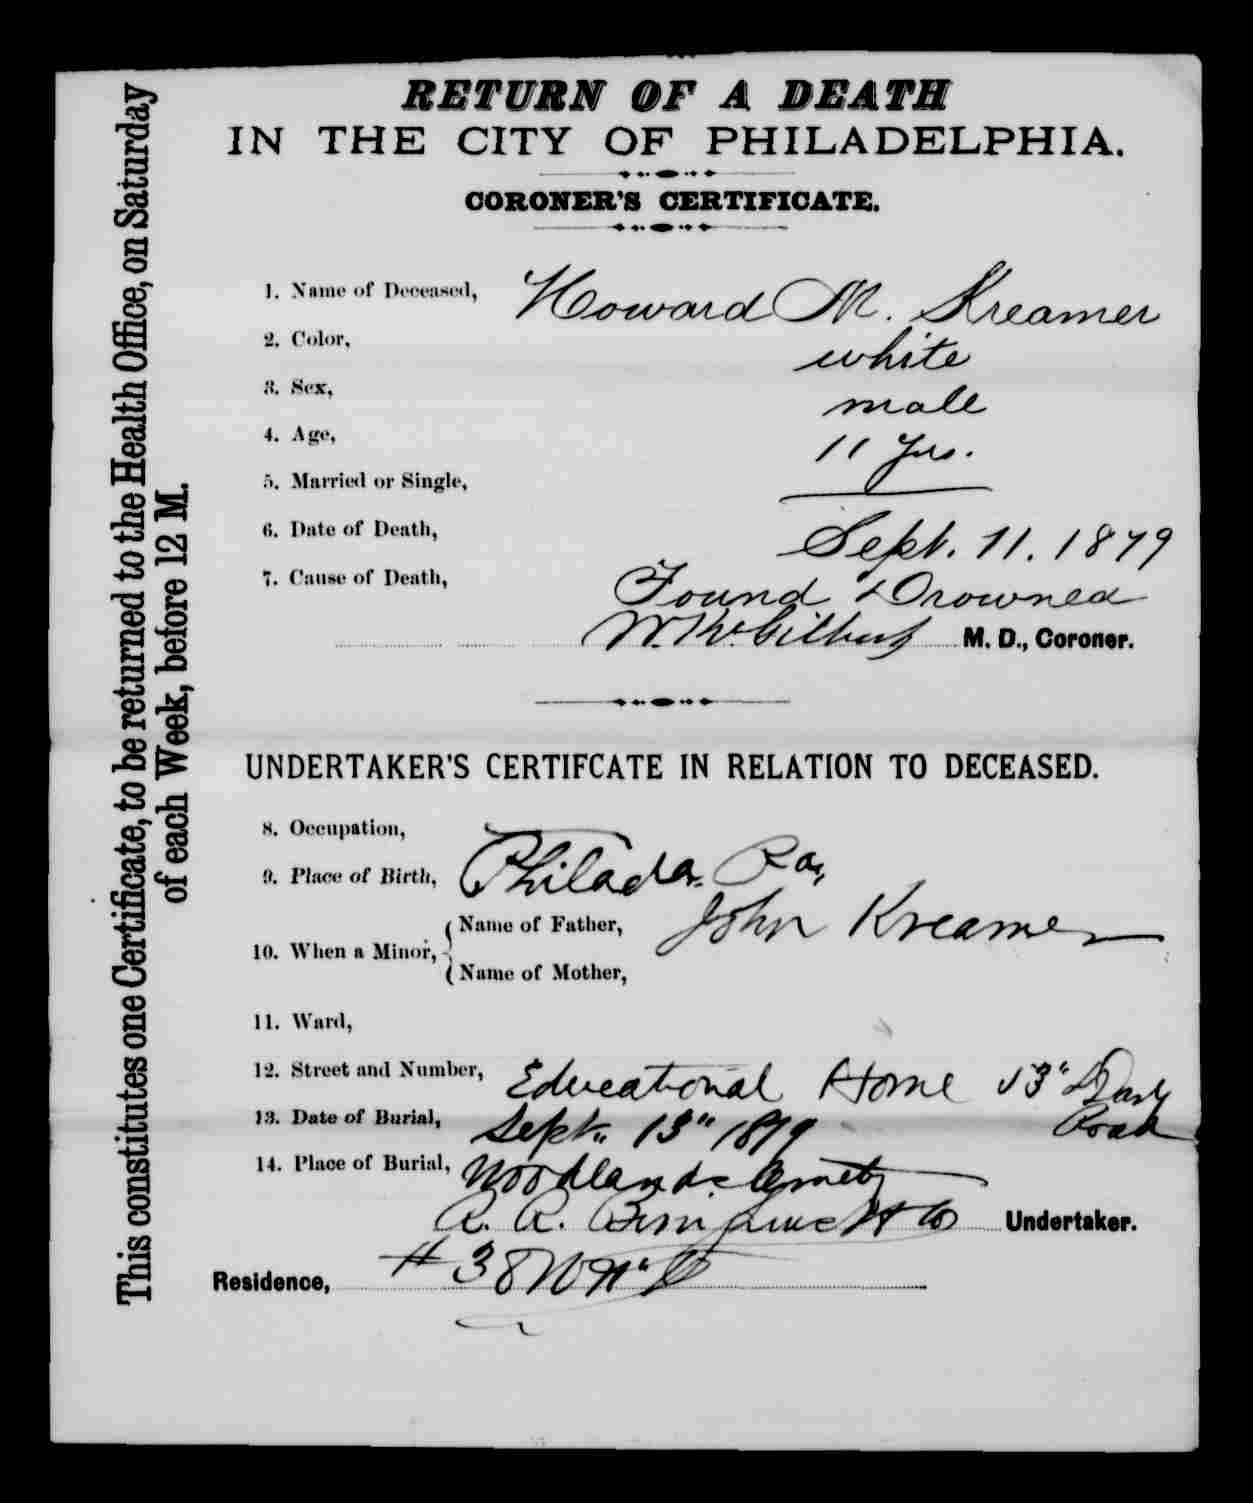 RETURN OF A DEATH
IN THE CITY OF PHILADELPHIA.
CORONER'S CERTIFICATE.
1. Name of Deceased, Howard M. Kreamer
2. Color, white
3. Sex, male
4. Age, 11 Yrs.
5. Married or Single,
6. Date of Death, Sept. 11. 1879
7. Cause of Death, Found Drowned
M. D., Coroner.
UNDERTAKER'S CERTIFCATE IN RELATION TO DECEASED.
8. Occupation,
9. Place of Birth, Philada. Pa.
10. When a Minor, Name of Father, John Kreamer
Name of Mother,
11. Ward,
12. Street and Number, Educational Home Darby
Road
13. Date of Burial, Sept. 13" 1879
14. Place of Burial, Woodlands Cemety
R. R. Undertaker.
Residence, # 38 N
This constitutes one Certificate, to be returned to the Health Office, on Saturday
of each Week, before 12 M.